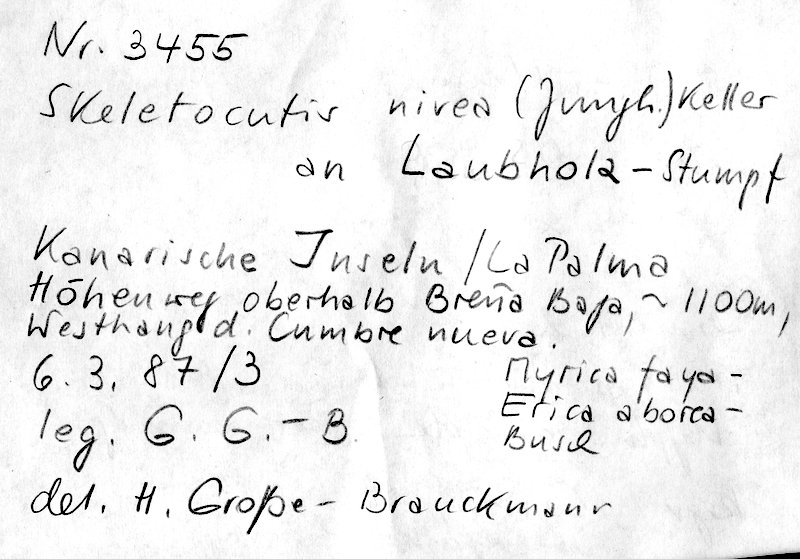 Nr. 3455
Skeletocutis nivea (Jungh.) Keller
an Laubholz-Stumpf
Kanarische Inseln / La Palma
Höhenweg oberhalb Breña Baja, ~ 1100m,
Westhang d. Cumbre nueva.
6. 3. 87/3
Myrica faya-
leg. G. G.-B
Erica aborea-
Busch
det. H. Große-Brauckmann